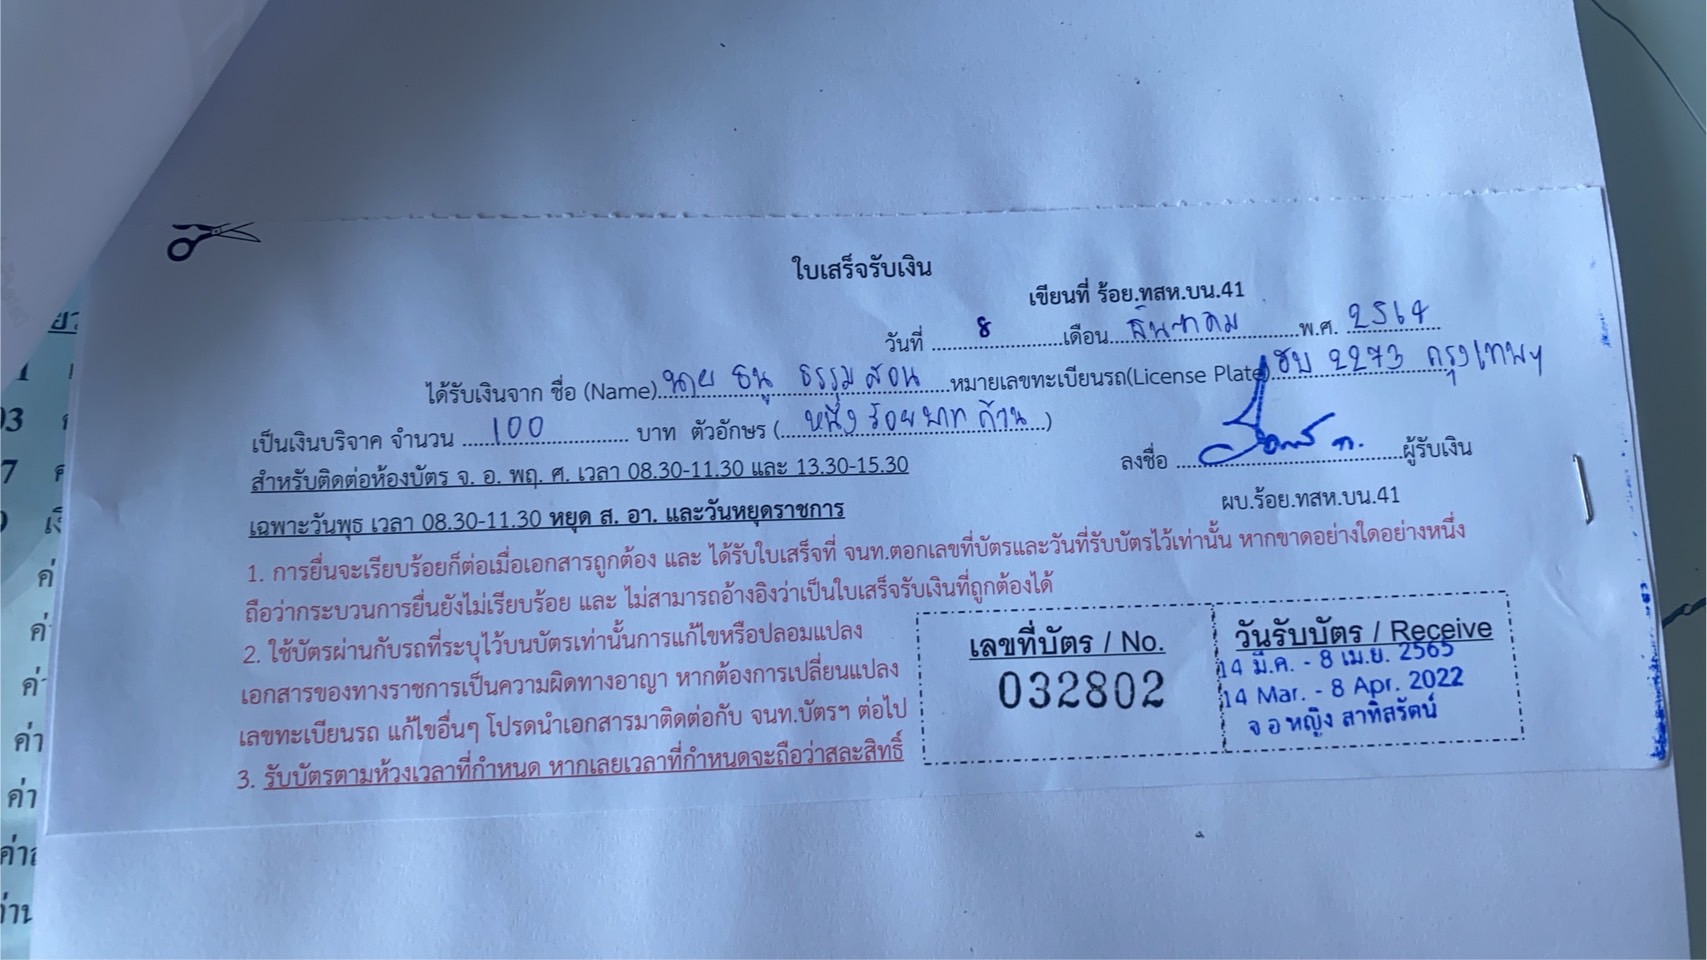 ใบเสร็จรับเงิน
เขียนที่ ร้อย.ทสห.บน.41
วันที่ 8 เดือน ธันวาคม พ.ศ. 2564
ได้รับเงินจาก ชื่อ (Name) นาย ธนู ธรรมสอน หมายเลขทะเบียนรถ(License Plate) ฮบ 2273 กรุงเทพฯ
เป็นเงินบริจาค จำนวน 100 บาท ตัวอักษร ( หนึ่งร้อยบาทถ้วน )
สำหรับติดต่อห้องบัตร จ. อ. พฤ. ศ. เวลา 08.30-11.30 และ 13.30-15.30
ลงชื่อ ผู้รับเงิน
เฉพาะวันพุธ เวลา 08.30-11.30 หยุด ส. อา. และวันหยุดราชการ
ผบ.ร้อย.ทสห.บน.41
1. การยื่นจะเรียบร้อยก็ต่อเมื่อเอกสารถูกต้อง และ ได้รับใบเสร็จที่ จนท.ตอกเลขที่บัตรและวันที่รับบัตรไว้เท่านั้น หากขาดอย่างใดอย่างหนึ่ง
ถือว่ากระบวนการยื่นยังไม่เรียบร้อย และ ไม่สามารถอ้างอิงว่าเป็นใบเสร็จรับเงินที่ถูกต้องได้
2. ใช้บัตรผ่านกับรถที่ระบุไว้บนบัตรเท่านั้นการแก้ไขหรือปลอมแปลง
เอกสารของทางราชการเป็นความผิดทางอาญา หากต้องการเปลี่ยนแปลง
เลขทะเบียนรถ แก้ไขอื่นๆ โปรดนำเอกสารมาติดต่อกับ จนท.บัตรฯ ต่อไป
3. รับบัตรตามห้วงเวลาที่กำหนด หากเลยเวลาที่กำหนดจะถือว่าสละสิทธิ์
เลขที่บัตร / No.
032802
วันรับบัตร / Receive
14 มี.ค. - 8 เม.ย. 2565
14 Mar. - 8 Apr. 2022
จ อ หญิง สาทิสรัตน์